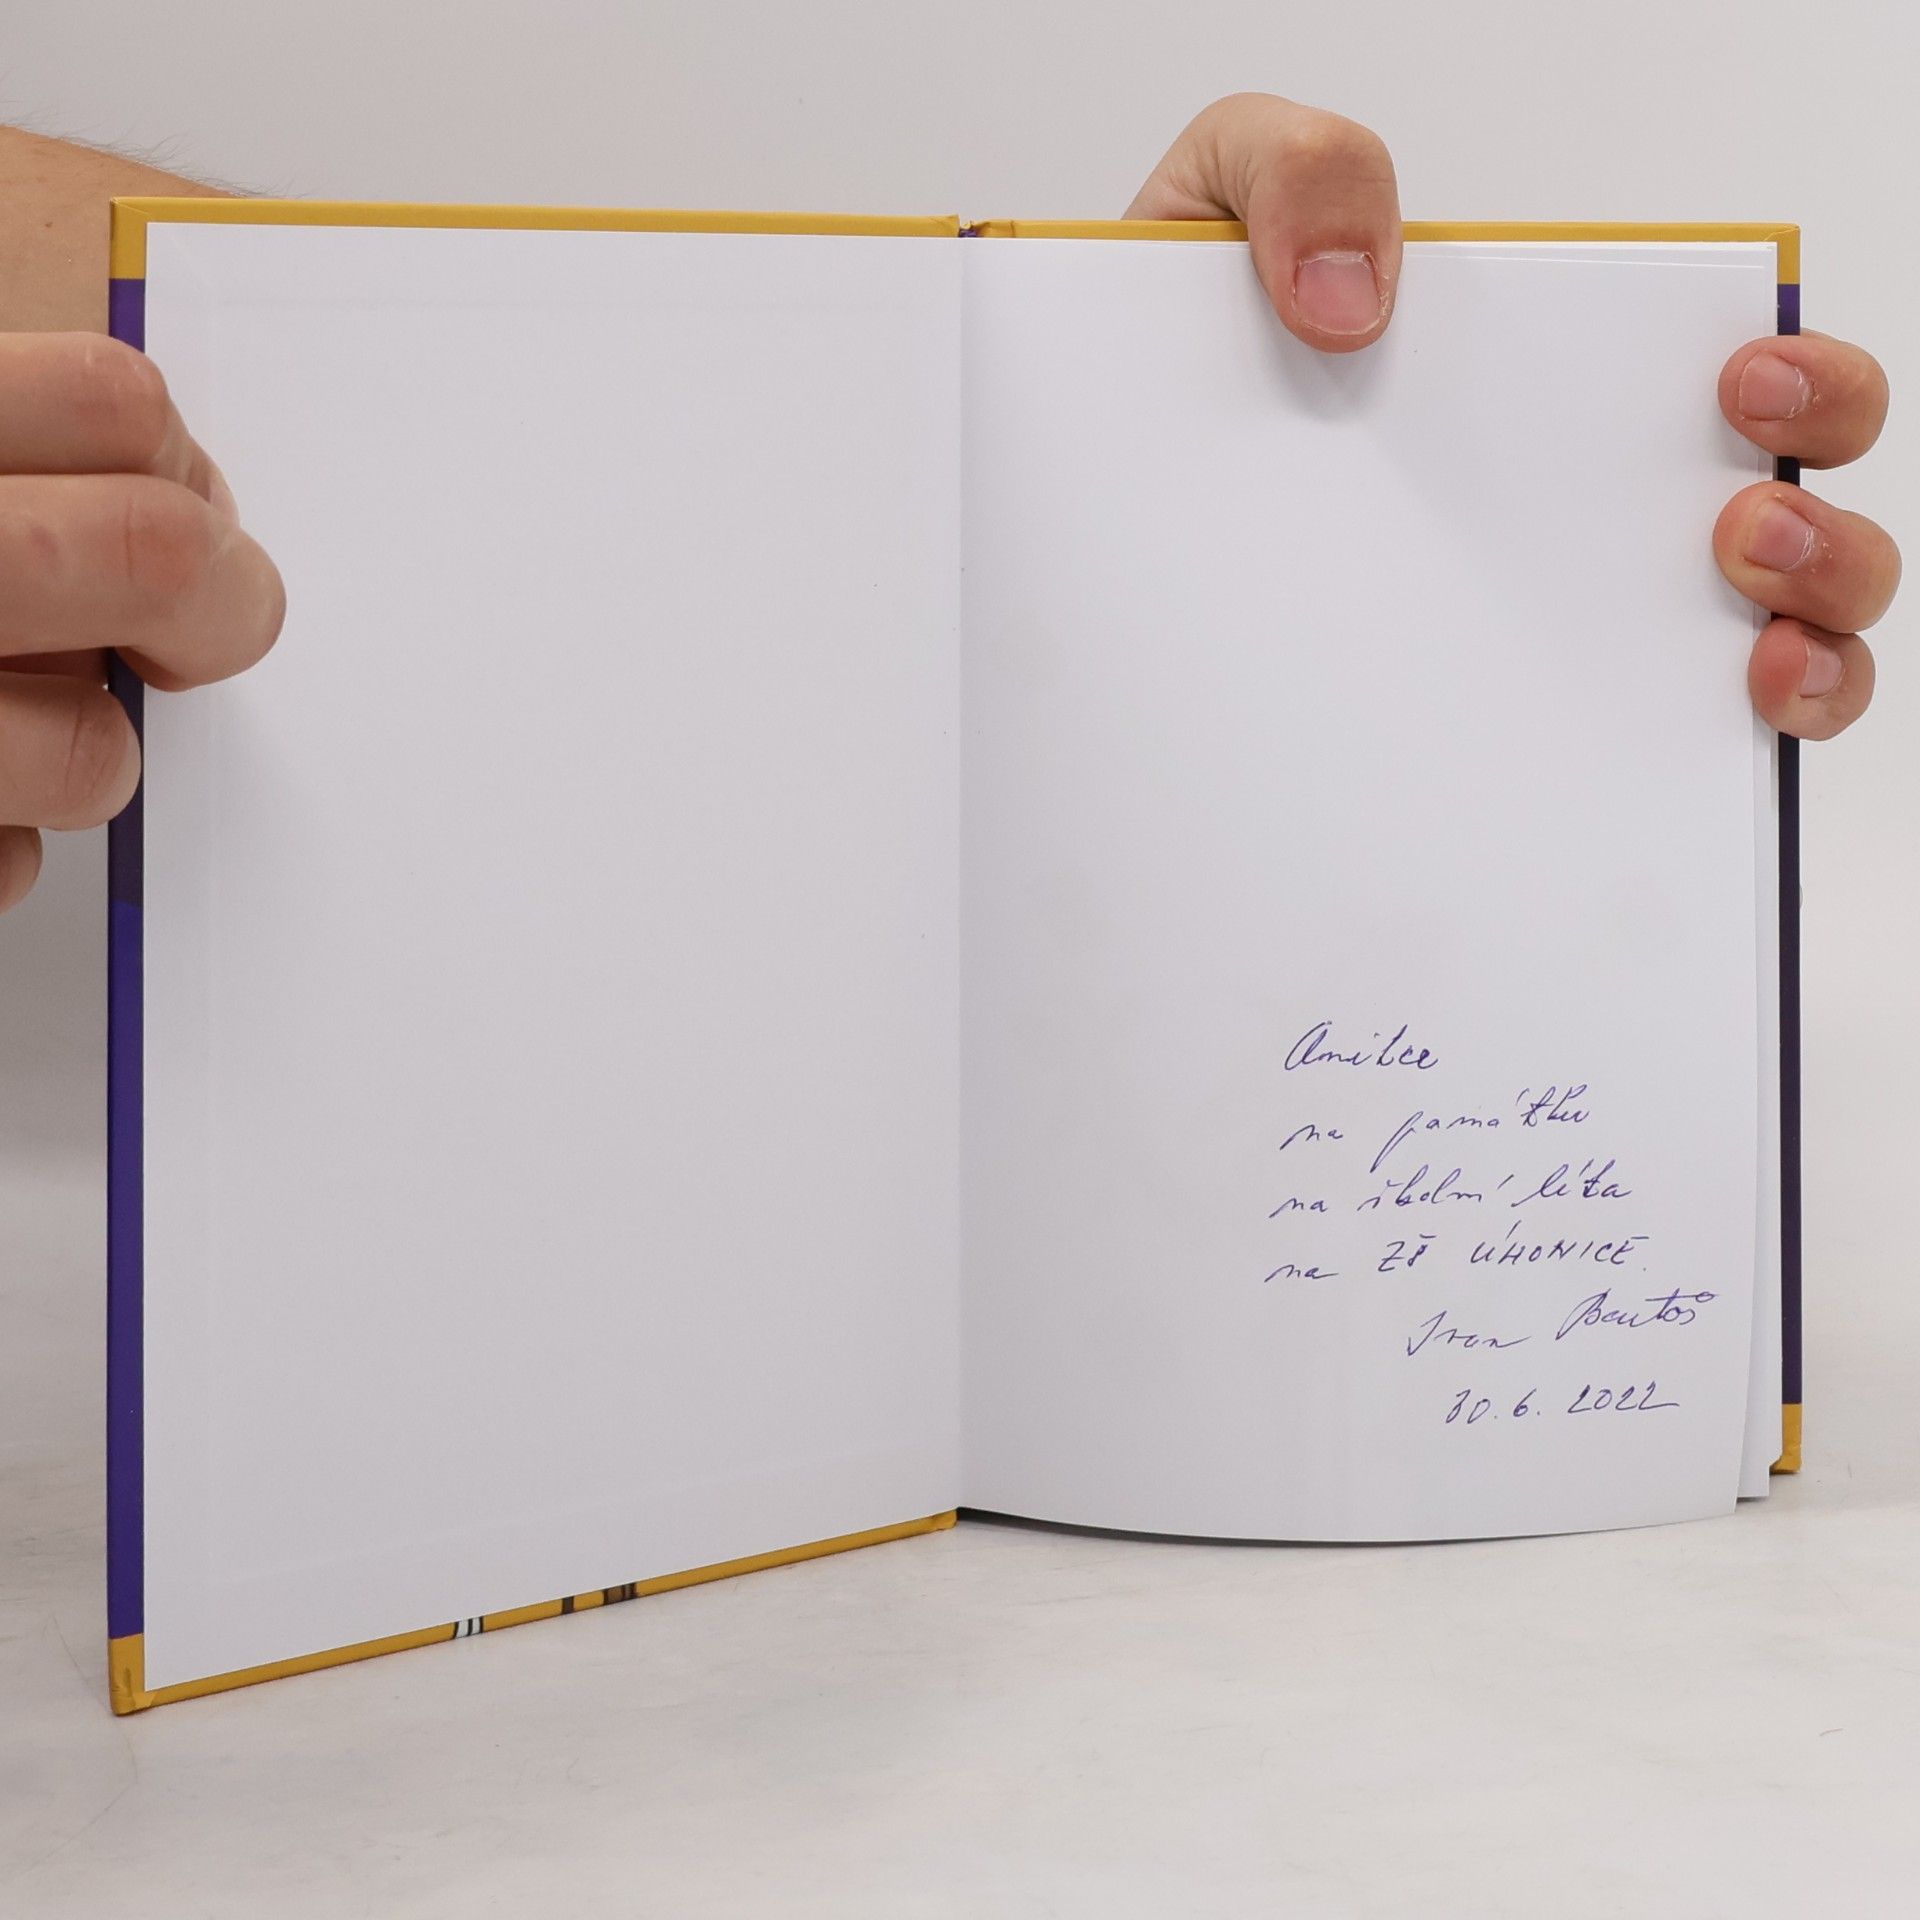 Anitce
na památku
na školní léta
na ZŠ ÚHONICE.
Ivan Bartoš
30. 6. 2022